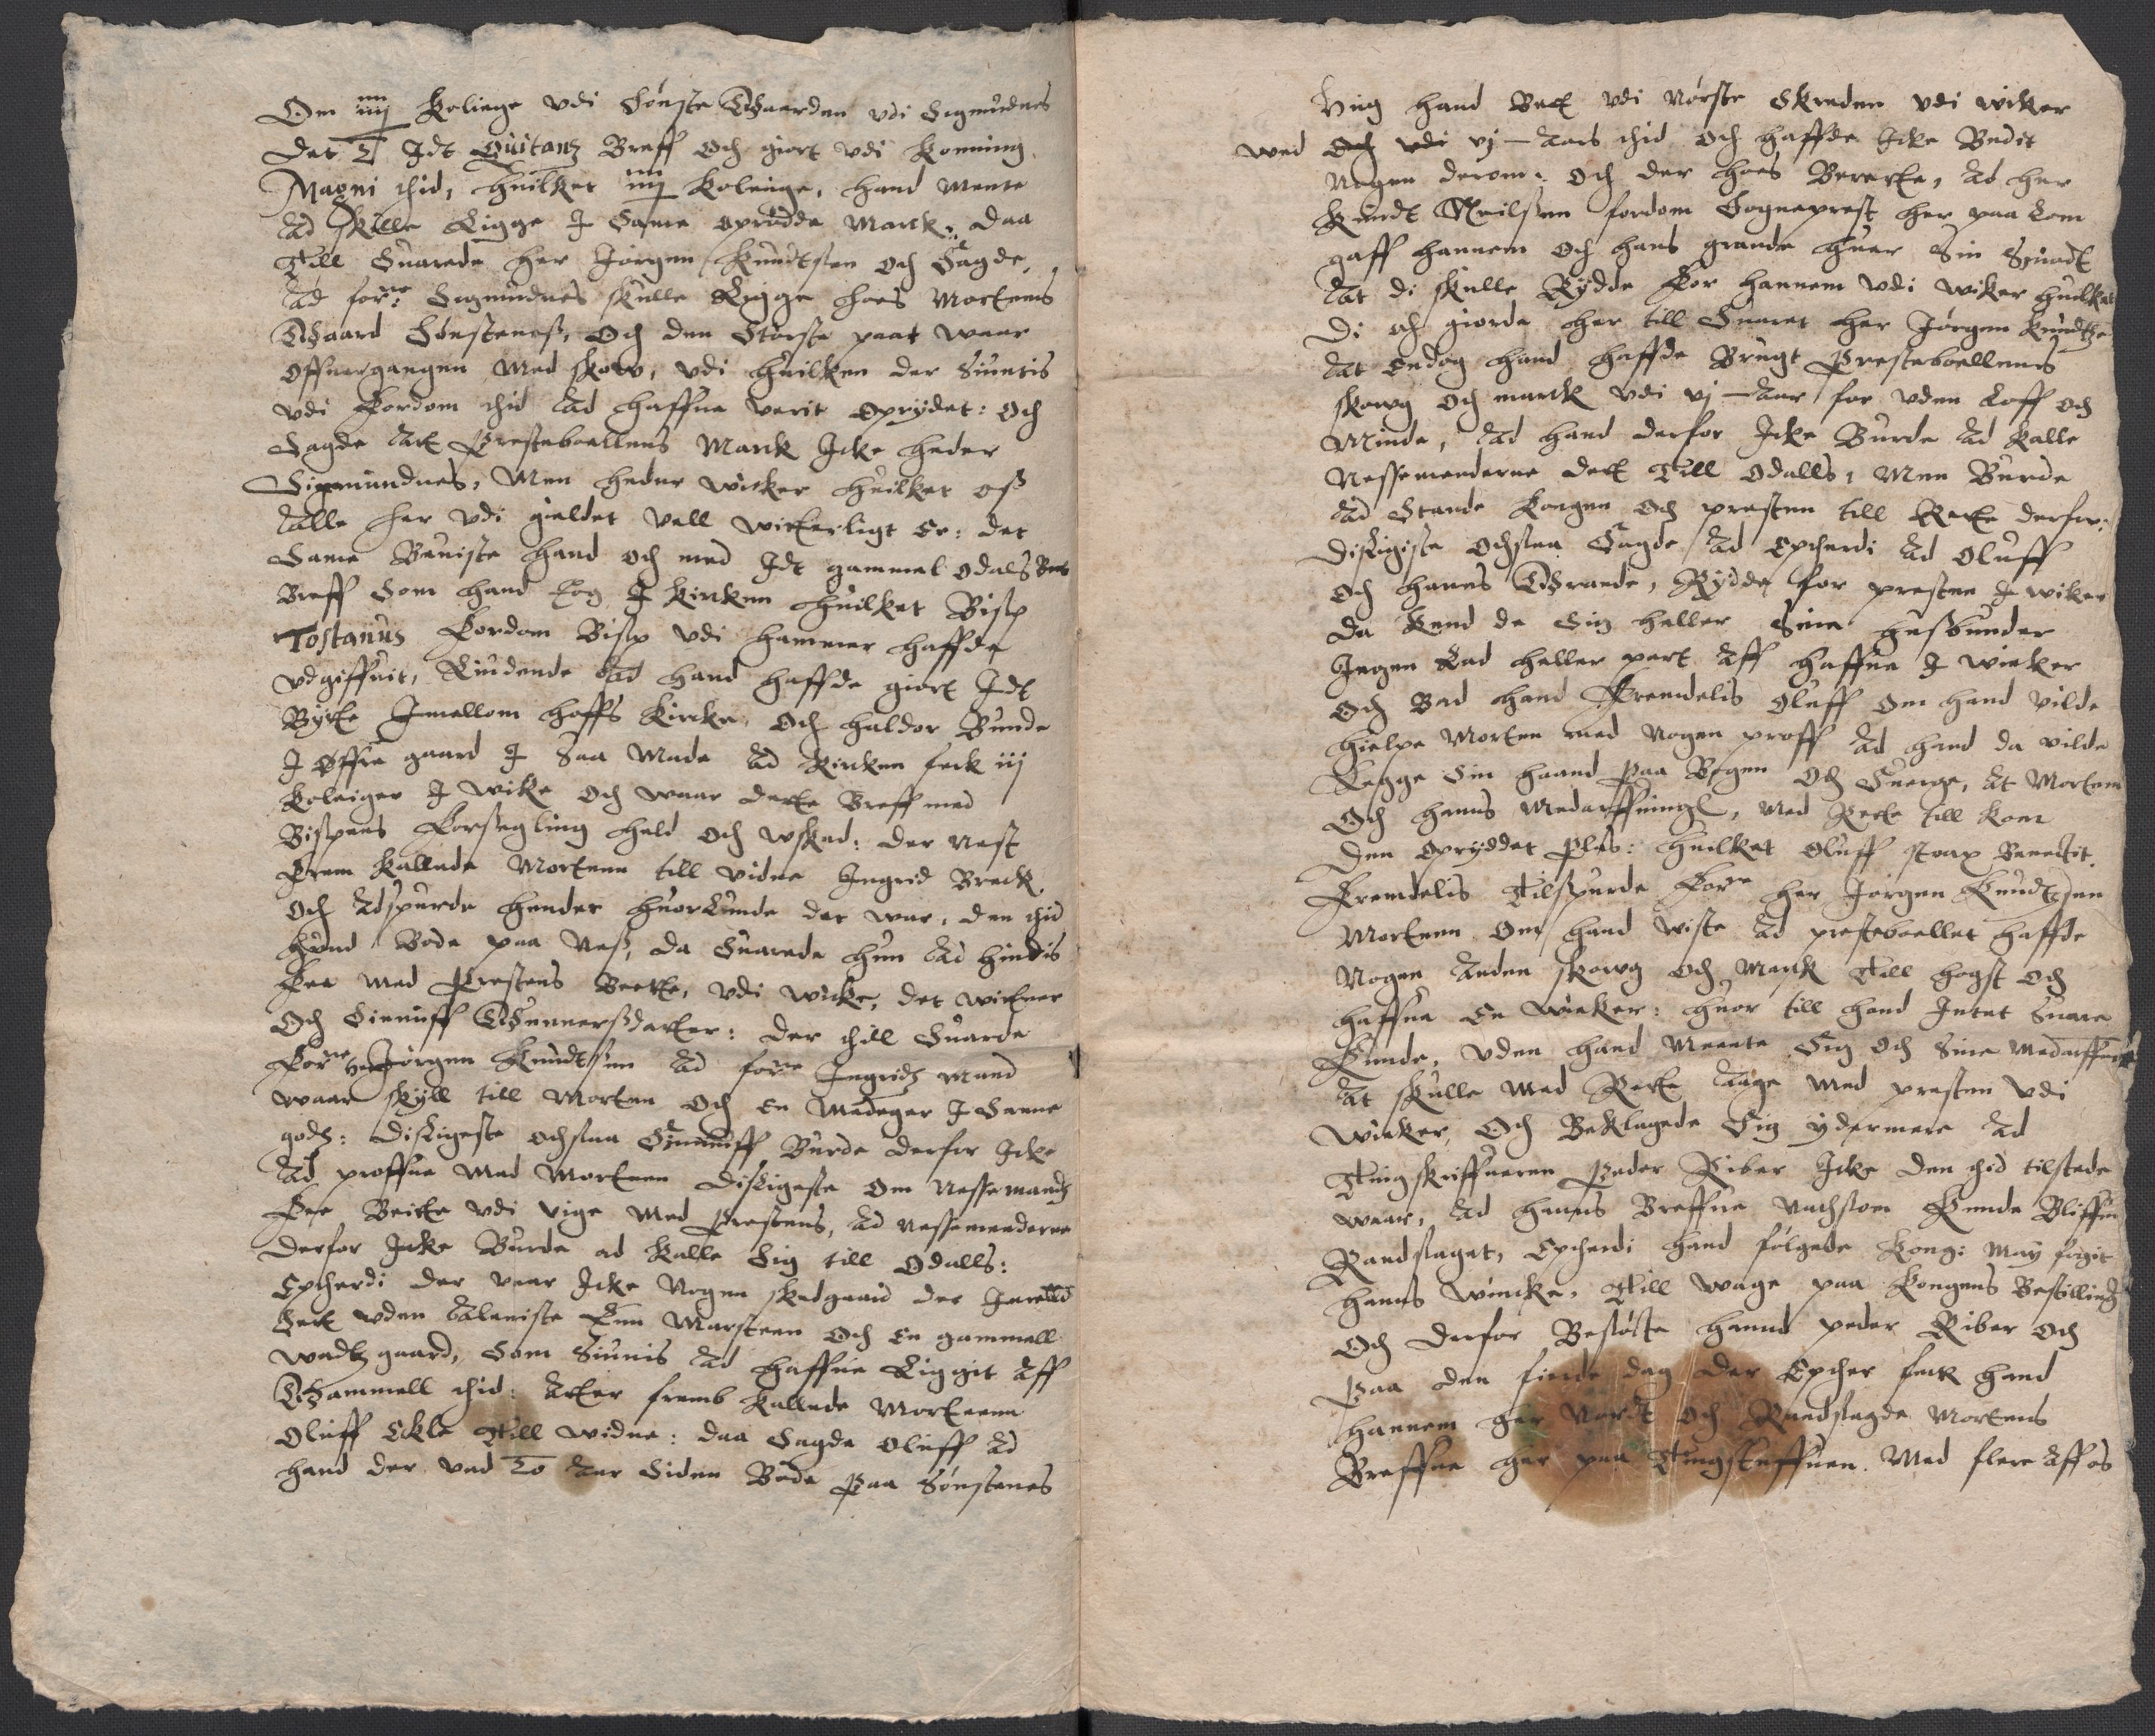 Om iiij koliege vdi Sønste Gaarden vdi Sigmudnes
Det Idt Quitanz Breff Och giort vdi Konning
Magni thid, huilket iiij koleige, hand mente
Ad skulle Ligge I Same oprudde Marck, daa
Till Suarede her Jørgen Knudtsen Och Sagde,
Ad forne: Sigmudnes skulle Ligge hoes Mortens
Gaard Sønstenes, Och den Største part waar
Offuergangen Med skow, vdi huilken der Siuntis
vdi Fordom thid Ad haffue verit Oprydet: Och
Sagde Att Presteboellens Marck Icke heder
Sigmundnes, Men heder wicker huilket oss
Alle her vdi gieldet vell witterligt Er: det
Same Beuiste hand och med Idt gammel Odals
Breff Som hand tog I kircken huilket Bisp
Tostanus Fordom Bisp vdi Hammer haffde
vdgiffuit, Liudende Ad hand haffde giort Idt
Bytte Imellom hoffs kircke, Och Haldor Bunde
I Øffre gaard I Saa Made Ad kircken feck iij
koleiger I wike Och waar dette Breff med
Bispens Forsegling held Och wskad: der nest
Frem kallede Mortenn till vidne Ingrid Breck
Och Adspurde hender huorlunde det war, den thid
hund Bode paa Ness, da Suarede hun Ad hindis
Fee med Prestens Beette, vdi wicke, det wittner
Och Siennuff Gunnersdatter: der thill Suarde
Forne her Jørgen Knudtsen Ad forne Ingridz mand
waar skyll till Morten Och En Medeger I Samme
godz: disligeste ochsaa Sinnuff Burde derfor Icke
Ad proffue med Mortenn disligeste Om Nessemendz
Fee Beitte vdi vige med Prestens, Ad nessemenderne
derfor Icke Burde ad kalle Sig till Odalls:
Eptherdi der vaar Icke Nogen skedgaard der Imellom
Sett vden Aleniste Enn Marsteen Och En gammell
wadtzgaard, Som Siunis Ad haffue Liggit Aff
Gammell thid: Atter fremb kallede Mortenn
Oluff Eckle Till widne: daa Sagde Oluff Ad
hand der ved To Aar Siden Bode Paa Sønstenes
Hug hand vdi Nørste Skreden vdi wiker
wed Och vdi vj Aars thid Och haffde Icke Bedit
Nogen derom: Och der hoes Berette, Ad her
Knudt Neilssen fordom Sogneprest her paa Lom
gaff hannem Och hans grande huer Sin
At di skulle Rydde For hannem vdi wiker huilket
Di och giorde her till Suaret her Jørgen Knudtzen
At Endog hand haffde Brugt Presteboellens
skowg Och marck vdi vj Aar for vden Loff och
Minde, Ad hand derfor Icke Burde Ad kalle
Nessemenderne dett Till Odalls, Men Burde
Ad Stande Kongen Och presten till Rette derfor:
Disligiste Ochsaa Sagde Ad Eptherdi Ad Oluff
Och hans Grande, Rydde for presten I wiker
Da kend de Sig heller Sine husbunder
Ingen Lod heller part Aff haffue I wicker
Och Bad hand Fremdelis Oluff Om hand vilde
hielpe Morten med Nogen proff Ad hand da vilde
Legge Sin haand Paa Bogen Och Suerge, At Morten
Och hanns Medarffuinge, Med Rette till kom
Den Opryddet Plas: huilket Oluff strax Benectit.
Fremdelis Tilspurde Forne her Jørgen Knudtzsen
Mortenn Om hand wiste Ad presteboellet haffde
Nogen Anden skowg Och Marck Till hogst Och
haffne En wicker: huor till hand Intet Suare
Kunde, vden hand Meente Sig Och Sine Medarffuinge
At skulle Med Rette Aage Med presten vdi
wicker, Och Beklagede Sig ydermere Ad
Tingskriffueren Peder Riber Icke den thid tilstede
waar, Ad hanns Breffue Kunde Bliffue
Randsaget, Eptherdi hand følgede Kong: May fogit
hanns wincke, Till Wage paa Kongens Bestilling
Och derfor hannd peder Riber Och
Paa den fierde dag der Epther feck hand
hannem her Nordt Och Randsagde Mortens
Breffue her paa Tingstuffuen. Med flere Aff os